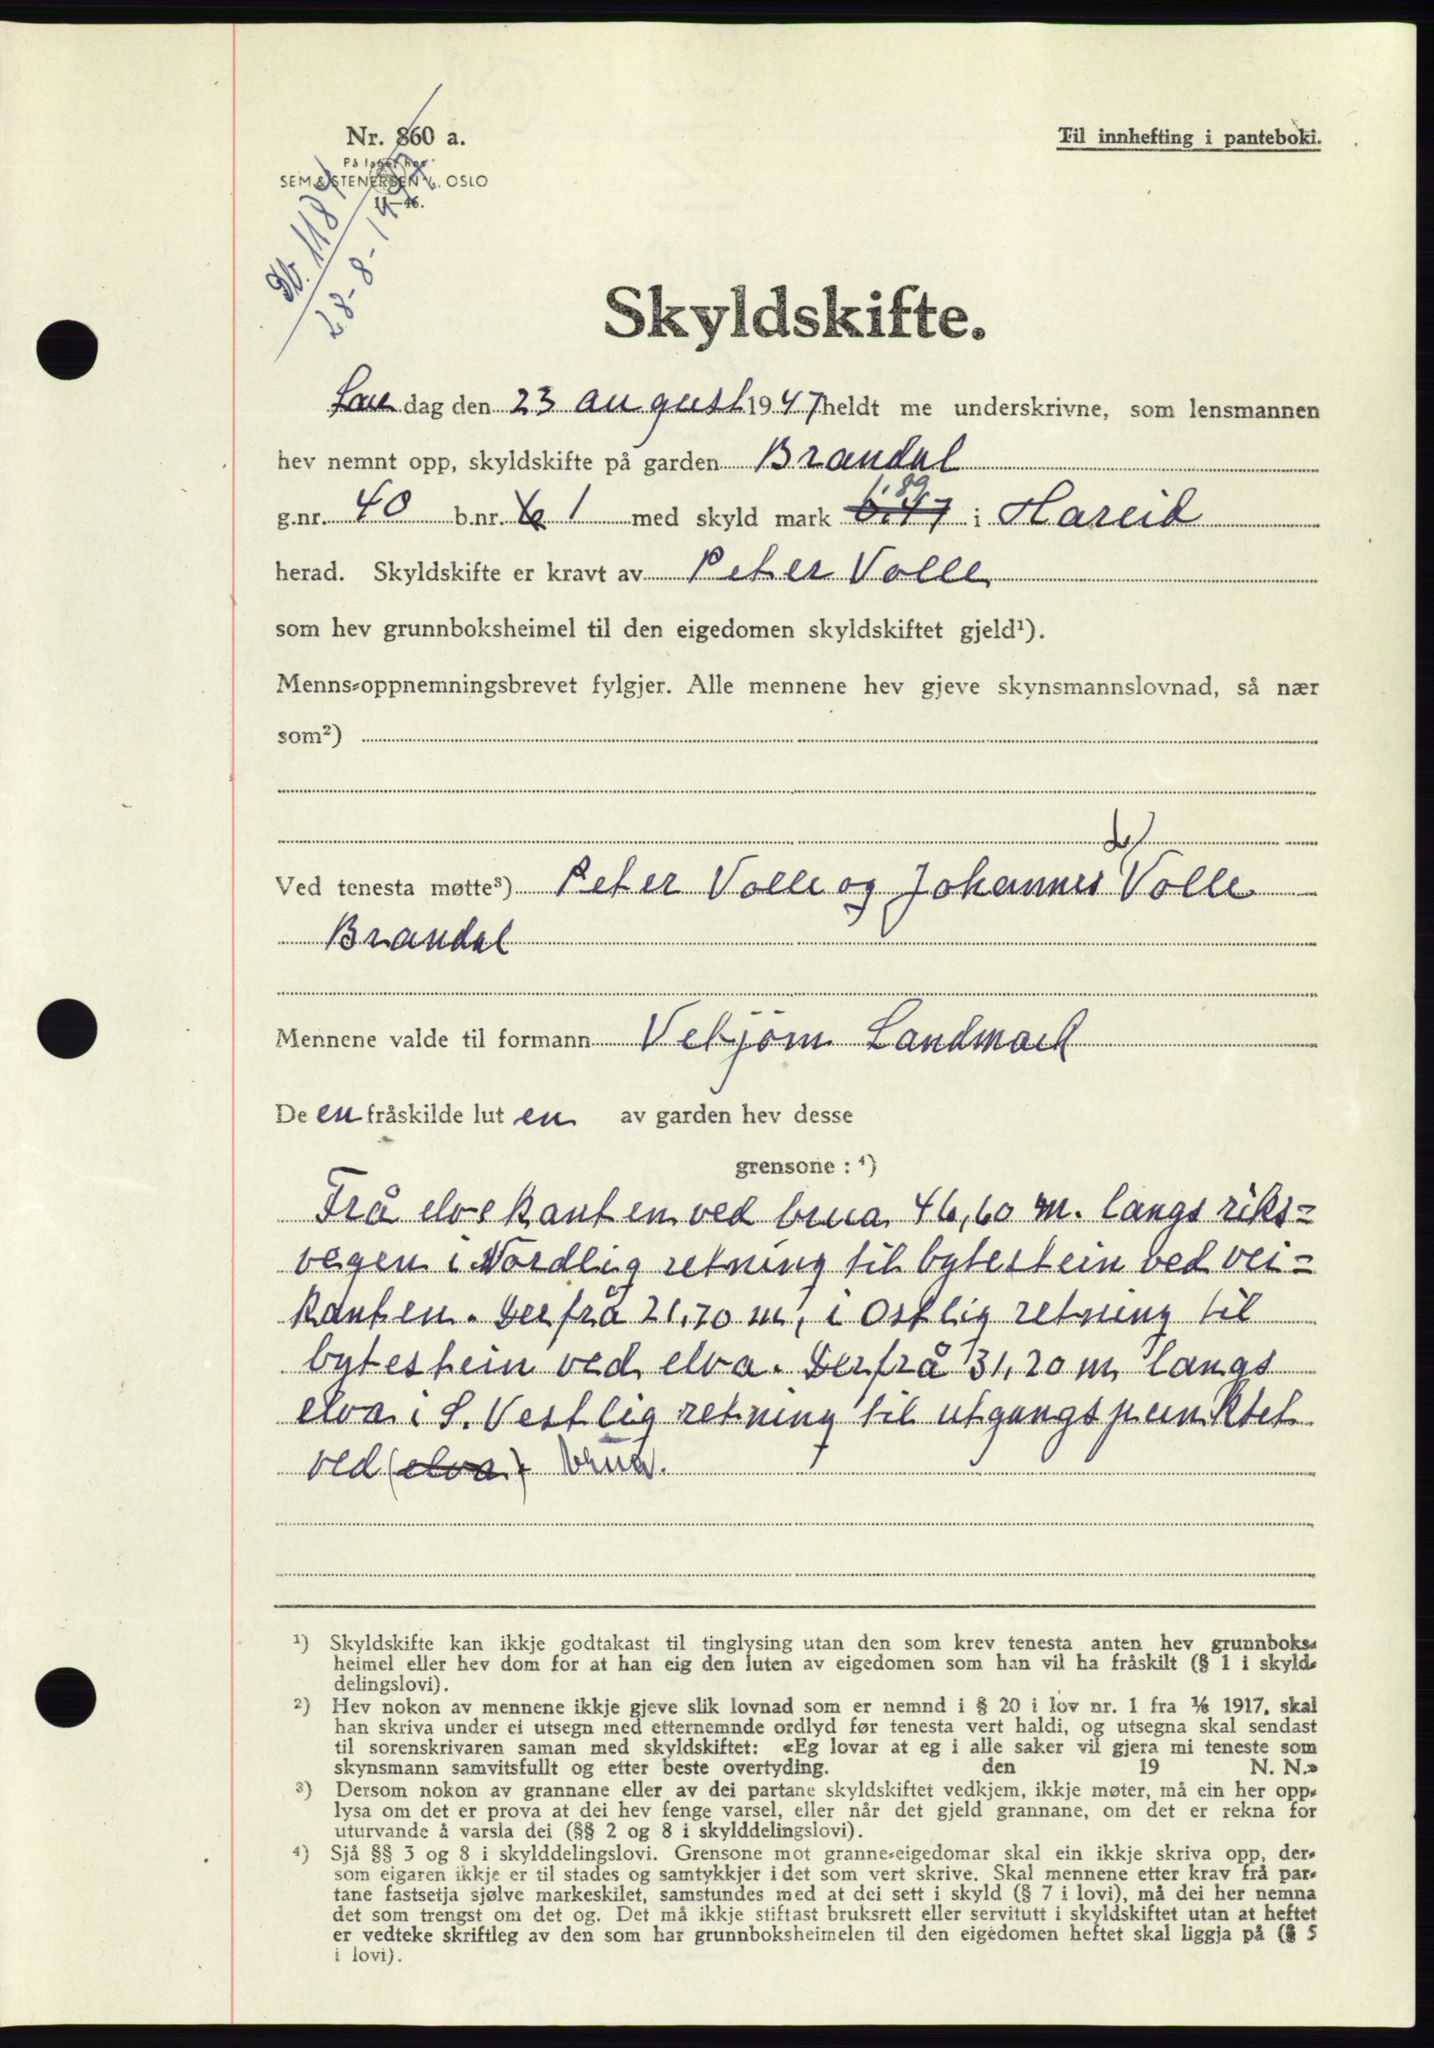 Nr. 860 a.
På lager hos
SEM & STENERSEN A/S, OSLO
11—46.
Db. 1184
28-8-1947
Til innhefting i panteboki.
Skyldskifte.
Lau dag den 23 august 1947 heldt me underskrivne, som lensmannen
hev nemnt opp, skyldskifte på garden Brandal
1.89
g.nr. 40 b.nr. 1 med skyld mark 6.47 i Hareid
herad. Skyldskifte er kravt av Peter Volle
som hev grunnboksheimel til den eigedomen skyldskiftet gjeld¹).
Menns-oppnemningsbrevet fylgjer. Alle mennene hev gjeve skynsmannslovnad, så nær
som²)
Ved tenesta møtte³) Peter Volle og Johannes Volle
Brandal
Mennene valde til formann Vebjørn Landmark
De en fråskilde lut en av garden hev desse
grensone : ⁴)
Frå elvekanten ved brua 46,60 m. langs riks=
vegen i Nordlig retning til bytestein ved vei=
kanten. Derfrå 21,70 m, i Ostlig retning til
bytestein ved elva. Derfrå 31,20 m langs
elva i S. Vestlig retning til utgangspunktet
ved (elva) brua.
¹) Skyldskifte kan ikkje godtakast til tinglysing utan den som krev tenesta anten hev grunnboks-
heimel eller hev dom for at han eig den luten av eigedomen som han vil ha fråskilt (§ 1 i skyld-
delingslovi).
²) Hev nokon av mennene ikkje gjeve slik lovnad som er nemnd i § 20 i lov nr. 1 fra 1/6 1917, skal
han skriva under ei utsegn med etternemnde ordlyd før tenesta vert haldi, og utsegna skal sendast
til sorenskrivaren saman med skyldskiftet: «Eg lovar at eg i alle saker vil gjera mi teneste som
skynsmann samvitsfullt og etter beste overtyding. den 19 N. N.»
³) Dersom nokon av grannane eller av dei partane skyldskiftet vedkjem, ikkje møter, må ein her opp-
lysa om det er prova at dei hev fenge varsel, eller når det gjeld grannane, om det er rekna for
uturvande å varsla dei (§§ 2 og 8 i skylddelingslovi).
⁴) Sjå §§ 3 og 8 i skylddelingslovi. Grensone mot granne-eigedomar skal ein ikkje skriva opp, der-
som eigaren ikkje er til stades og samtykkjer i det som vert skrive. Skal mennene etter krav frå par-
tane fastsetja sjølve markeskilet, samstundes med at dei sett i skyld (§ 7 i lovi), må dei her nemna
det som trengst om det og. Det må ikkje stiftast bruksrett eller servitutt i skyldskiftet utan at heftet
er vedteke skriftleg av den som har grunnboksheimelen til den eigedomen heftet skal liggja på (§ 5
i lovi).